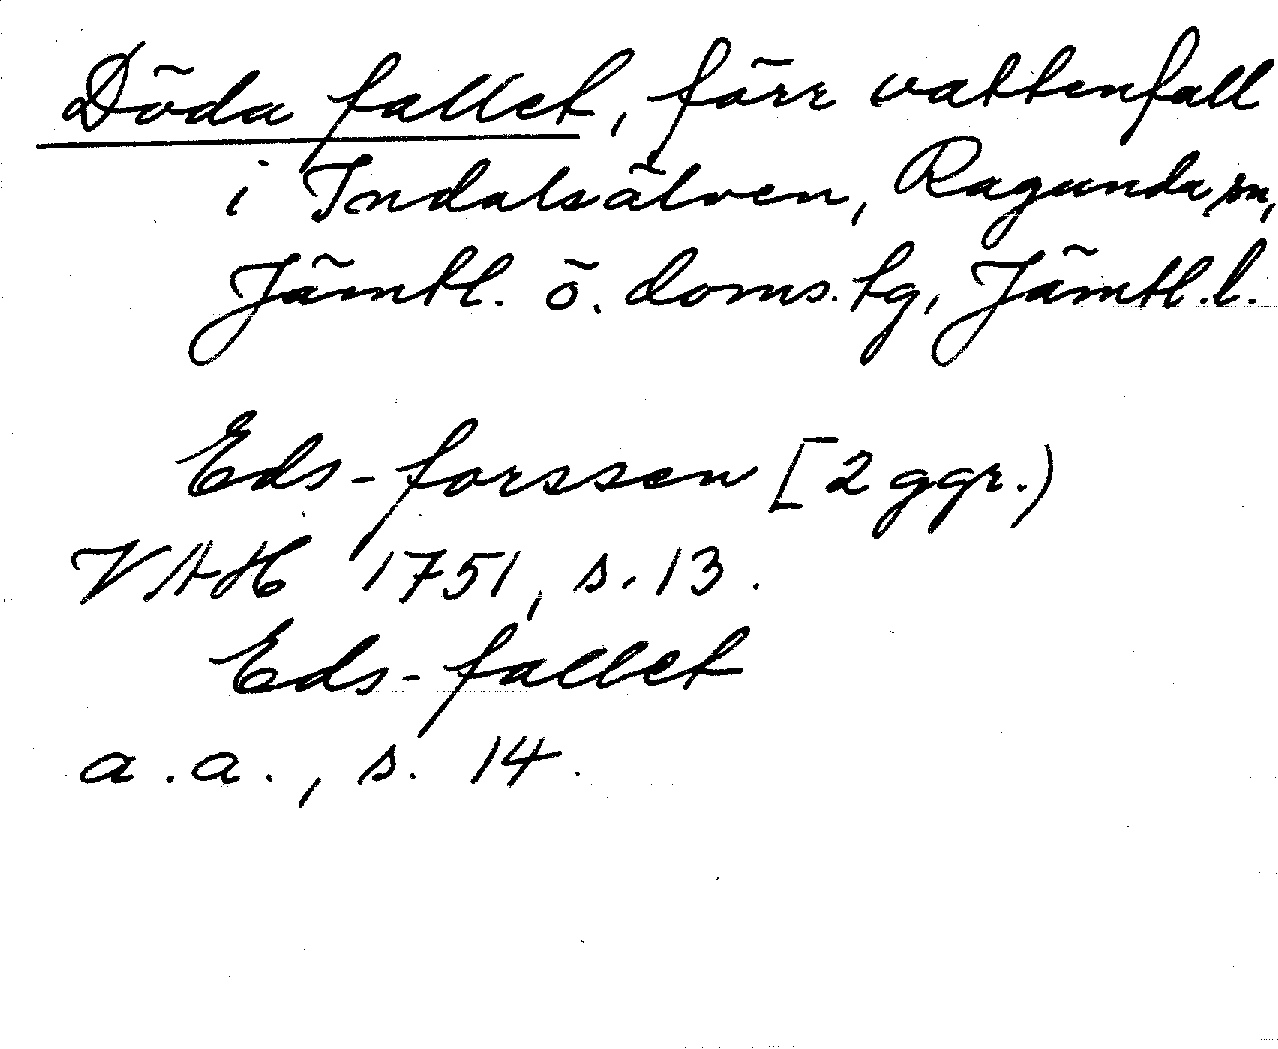 Döda fallet, förr vattenfall
i Indalsälven, Ragunda sn,
Jämtl. ö. doms. tg, Jämtl. l.
Eds-forssen [2 ggr.)
VAH 1751, s. 13.
Eds-fallet
a.a., s. 14.